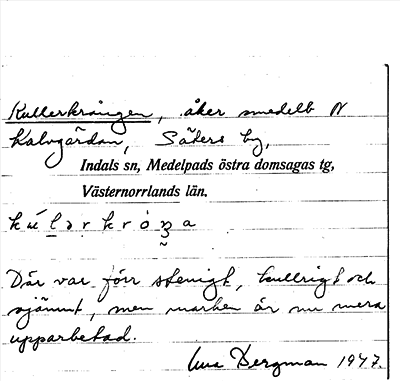 Kullerkrången, åker omedelb N
Kalvgärdan, Säters by,
Indals sn, Medelpads östra domsagas tg,
Västernorrlands län.
Där var förr stenigt, kullrigt och
ojämnt, men marken är nu mera
upparbetad.
Bergman 1947.